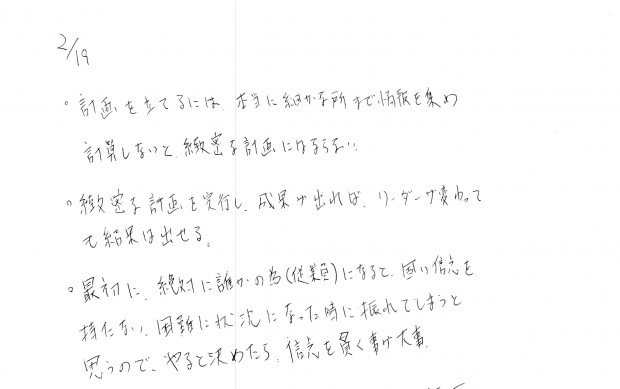 2/19
。計画を立てるには、本当に細かな所まで情報を集め
計算しないと、緻密な計画にはならない。
。緻密な計画を実行し、成果が出れば、リーダーが変わって
も結果は出せる。
。最初に、絶対に誰かの為(従業員)になると、固い信念を
持たない、困難に状況になった時に振れてしまうと
思うので、やると決めたら、信念を貫く事が大事。